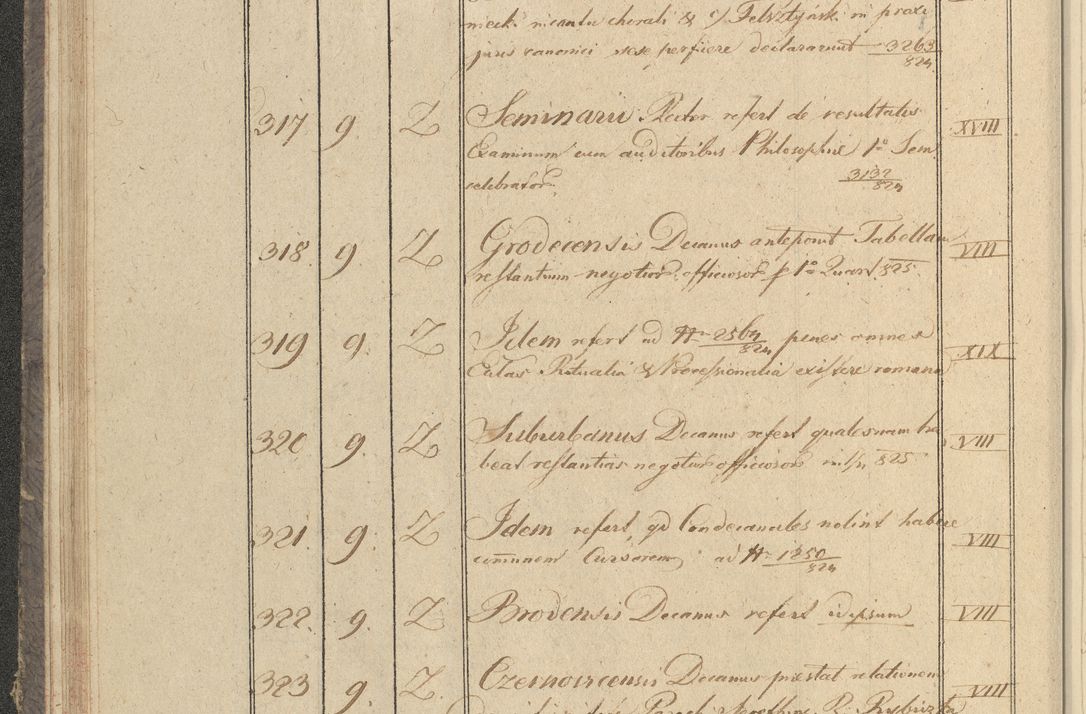 juris canonici sese perficere declararunt 3263/824
317 9 Z Seminarii Rector refert de resultatis XVIII
Examinum cum auditoribus Philosophiae 1o Sem.
celebrator. 3132/824
318. 9. Z Grodecensis Decanus anteponit Tabellam VIII
restantium negotior. officiosor p 1o Quart. 825.
319 9. Z Idem refert ad N 2564/824 penes omnes XIX
Eccl̃as Ritualia & Processionalia existere romana
320 9. Z Suburbanus Decanus refert qualesnam ha VIII
beat restantias negotior officiosor 825
321. 9. Z Idem refert, qd Condecanales nolint habere VIII
com̃unem Cursorem, ad N 1250/824
322. 9. Z Brodensis Decanus refert id ipsum VIII
323 9. Z. Decanus praestat relationem VIII